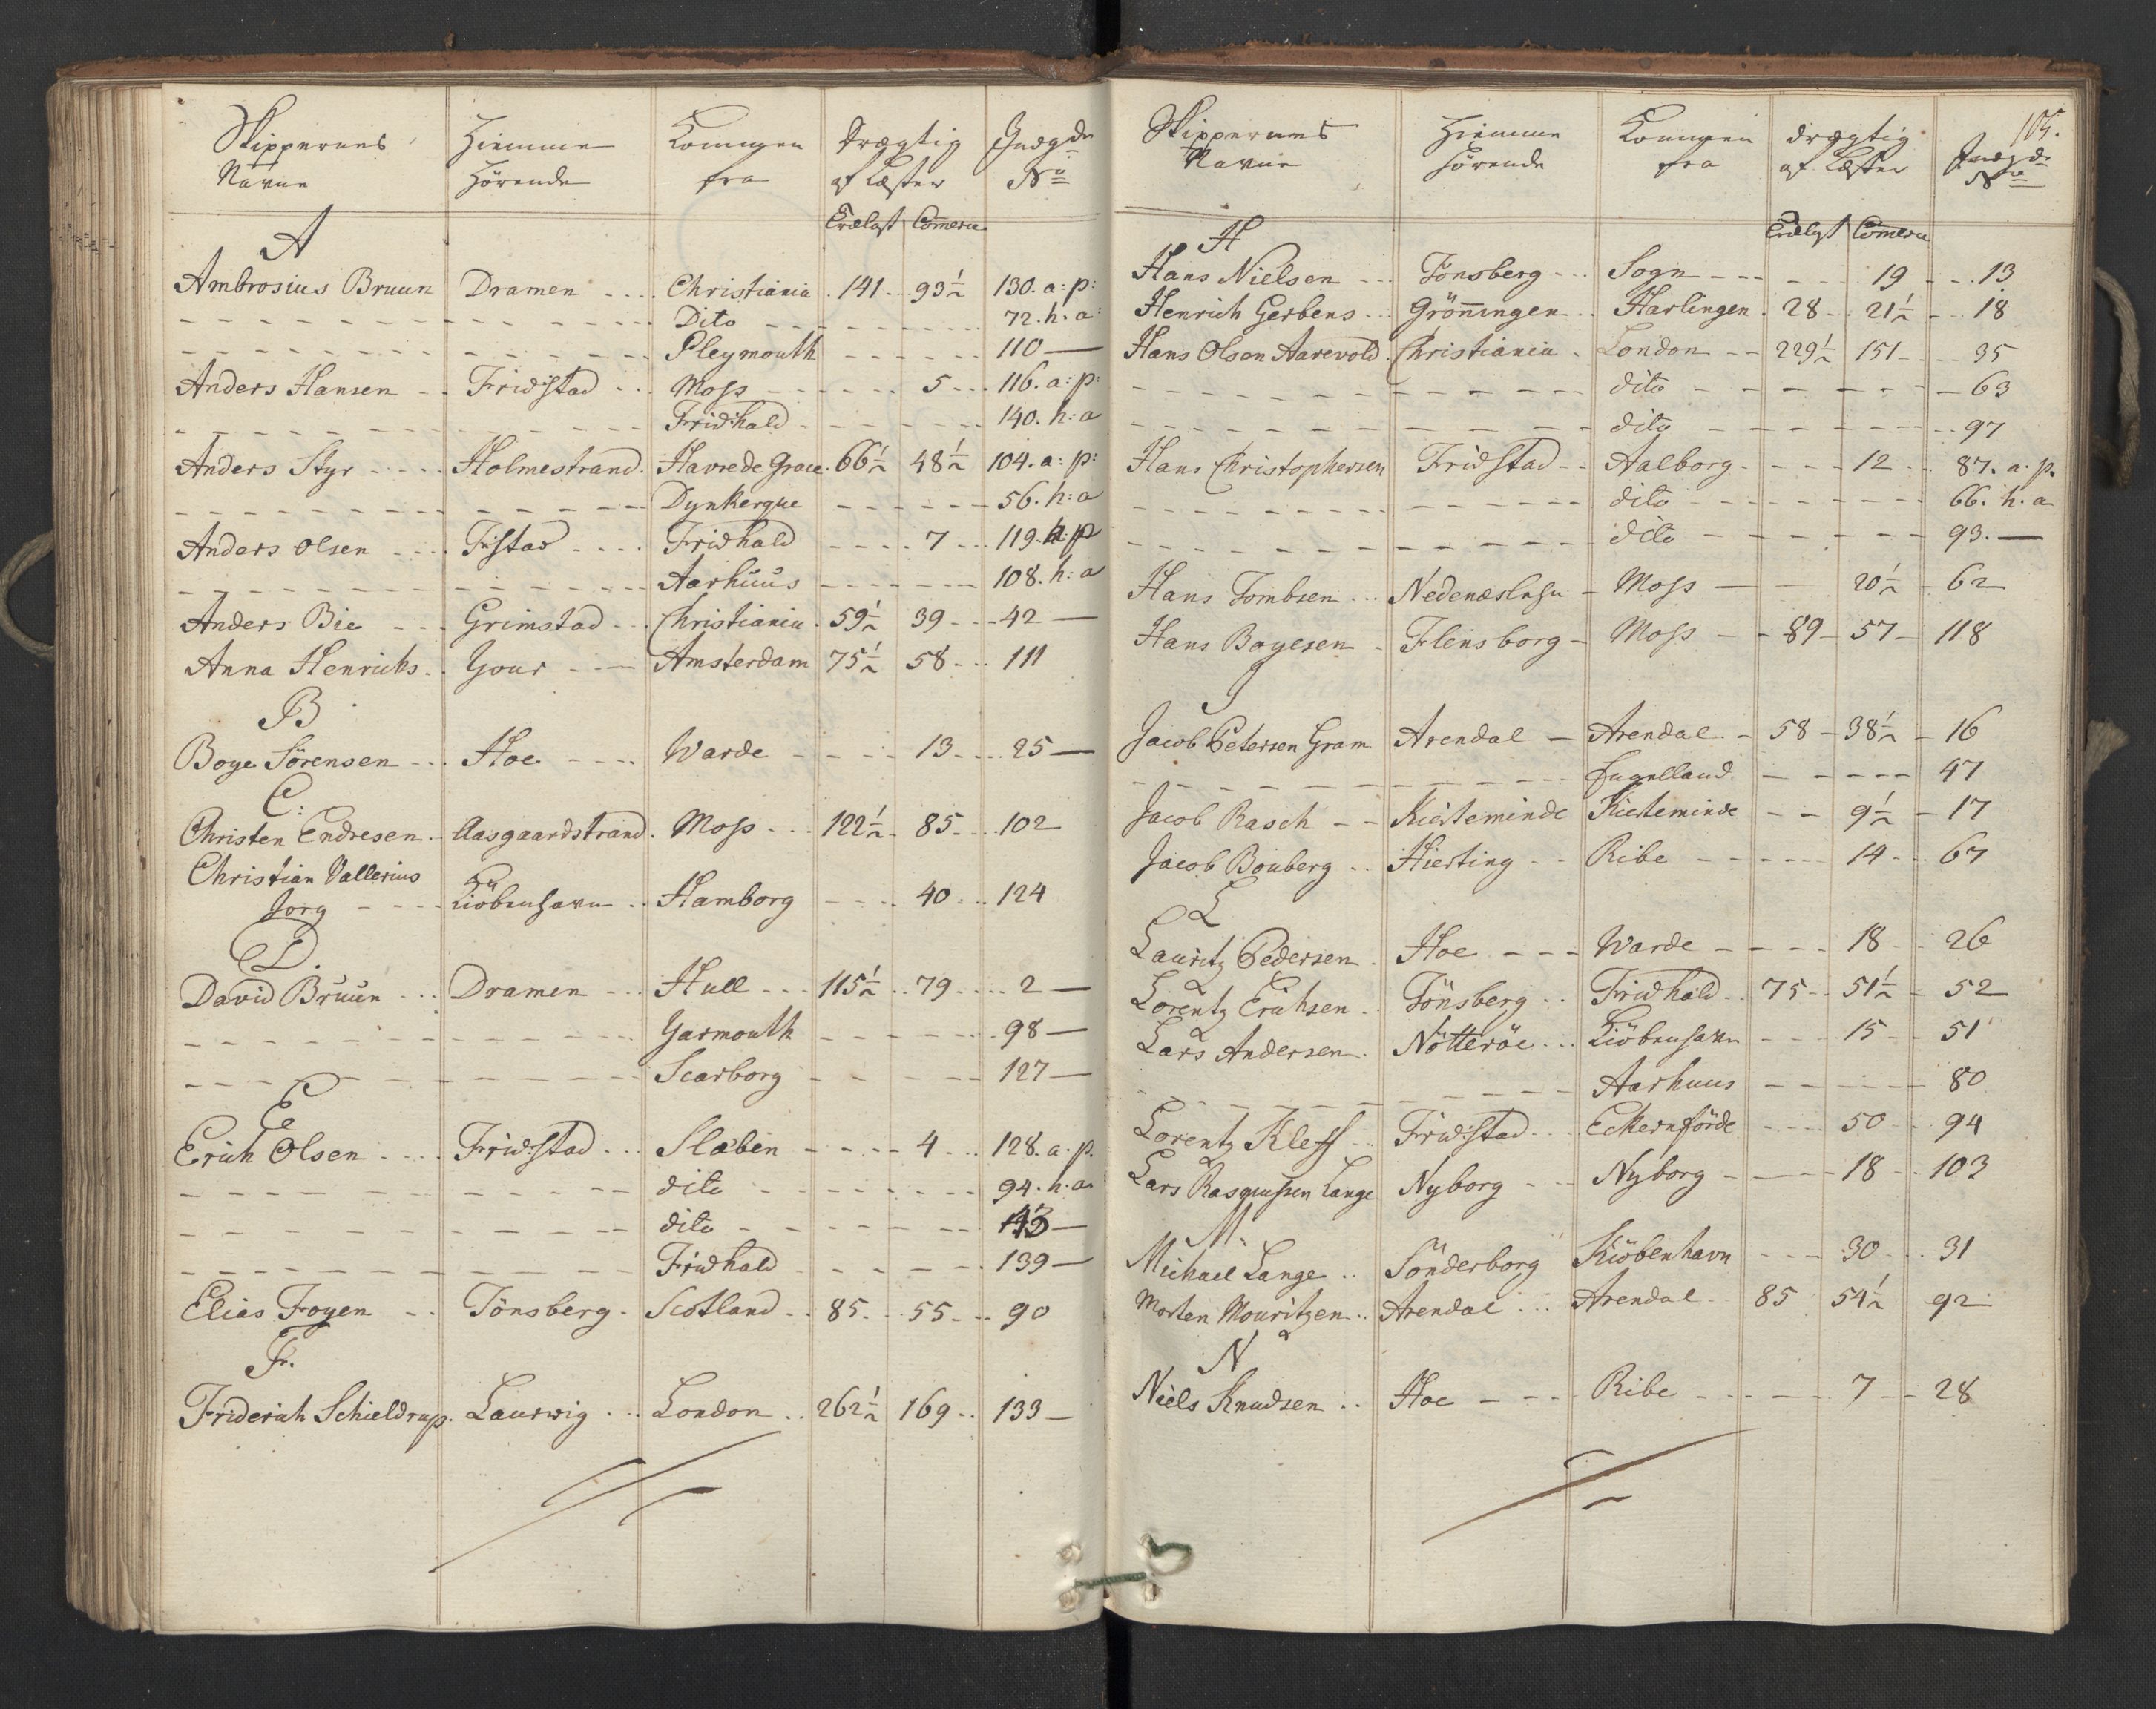 Skippernes Hiemme Kommen Drægtig Indgde
Navne Hörende fra af Læster No
Trælast Comerce
A
Ambrosius Bruun Dramen Christiania 141 93½ 130. a: p:
Dito 72. h: a:
Pleymouth 110 —
Anders Hansen Fridstad Moss 5 116. a: p:
Fridhald 140. h: a
Anders Styr Holmestrand Havre de Grace 66½ 48½ 104. a: p:
Dynkerque 56. h: a
Anders Olsen Fstad Fridhald 7 119. a: p
Aarhuus 108. h: a
Anders Bie Grimstad Christiania 59½ 39 42 —
Anna Henrichs Gour Amsterdam 75½ 58 111
B
Boye Sörensen Hoe Warde 13 25 —
C:
Christen Endresen Aasgaardstrand Moss 122½ 85 102
Christian Vallerius
Jorg Kiöbenhavn Hamborg 40 124
D.
David Bruun Dramen Hull 115½ 79 2 —
Yarmouth 98 —
Scarborg 127 —
E
Erich Olsen Fridstad Slæben 4 128. a. p.
dito 94. h. a.
dito 113 —
Fridhald 139 —
Elias Foyen Tönsberg Scotland 85 55 90
F.
Friderich Schieldrup Laurwig London 262½ 169 133 —
105.
Skippernes Hiemme Kommen drægtig Indgde
Navne hörende fra af Læster No
Trælast Comerce
H
Hans Nielsen Tönsberg Sogn 19 13
Henrich Gerbens Gröningen Harlingen 28 21½ 18
Hans Olsen Aarevold Christiania London 229½ 151 35
dito 63
dito 97
Hans Christophersen Fridstad Aalborg 12 87. a. p.
dito 66. h. a
dito 93. —
Hans Tombsen Nedenæslehn Moss 20½ 62
Hans Boyesen Flensborg Moss 89 57 118
J
Jacob Petersen Gram Arendal Arendal 58 38½ 16
Engelland 47
Jacob Rasch Kierteminde Kierteminde 9½ 17
Jacob Bouberg Hierting Ribe 14 67
L
Lauritz Pedersen Hoe Warde 18 26
Lorentz Erichsen Tönsberg Fridhald 75 51½ 52
Lars Andersen Nötteröe Kiöbenhavn 15 51
Aarhuus 80
Lorentz Kleff Fridstad Eckernförde 50 94
Lars Rasmussen Lange Nyborg Nyborg 18 103
M.
Michael Lange Sönderborg Kiöbenhavn 30 31
Morten Mouritzen Arendal Arendal 85 54½ 92
N
Niels Knudsen Hoe Ribe 7 28